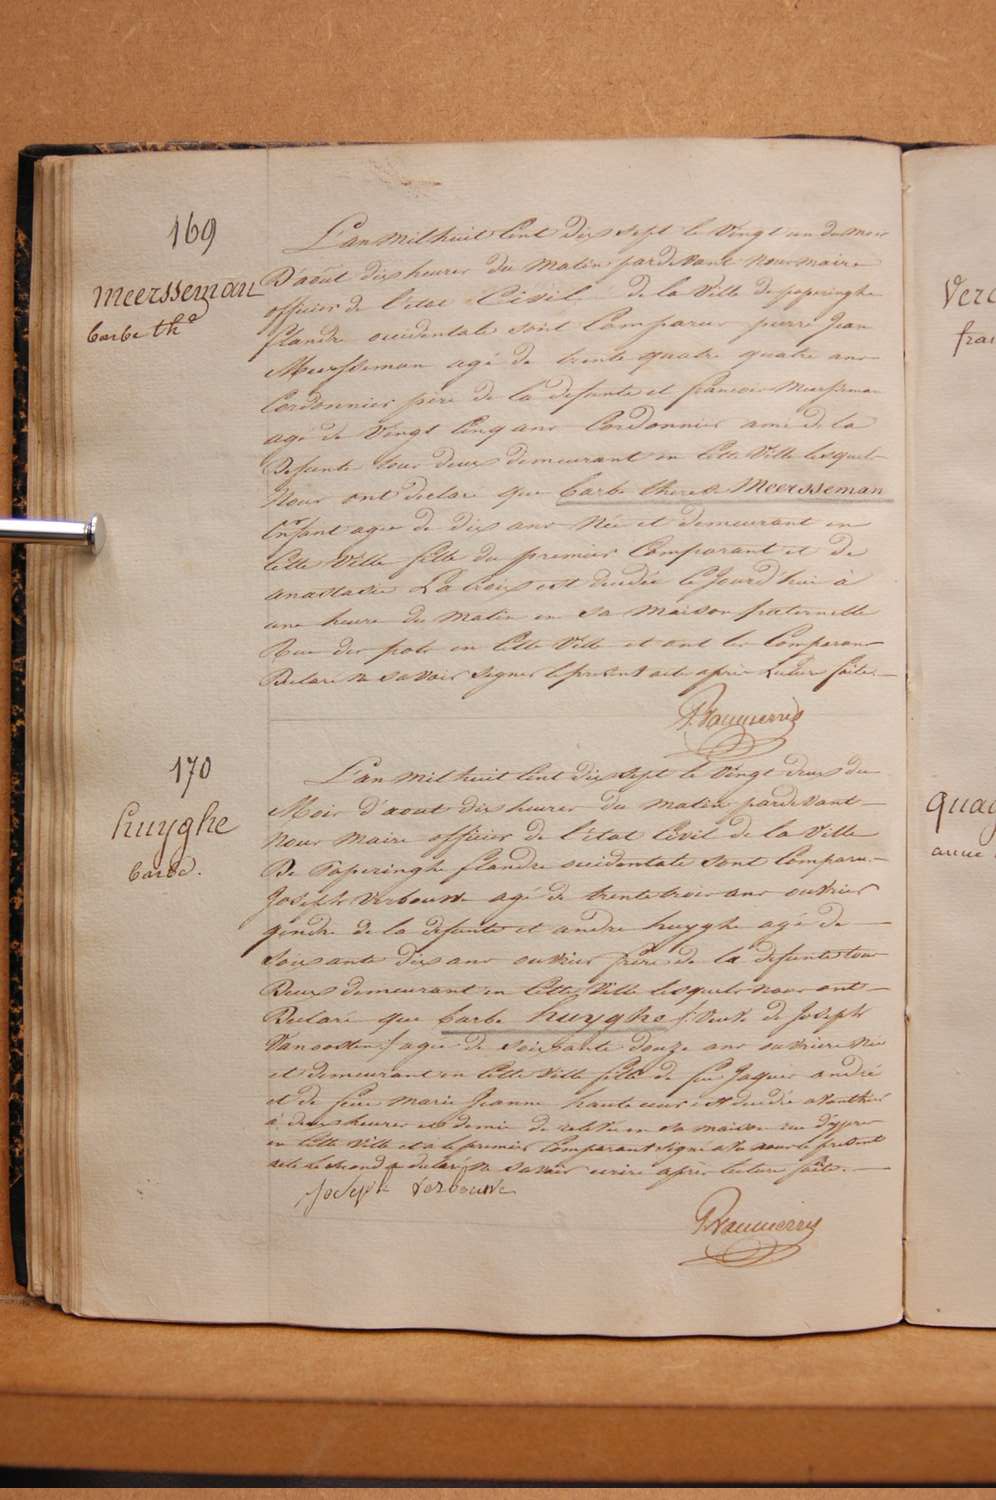 169
Meersseman
barbe th.e
L'an mil huit Cent dix sept le vingt un du mois
D'aout dix heures du Matin pardevant nous maire
officier de l'état Civil de la Ville de poperinghe
flandre occidentale sont Comparus pierre Jean
Meersseman agé de trente quatre quatre ans
Cordonnier père de la defunte et francois Meersseman
agé de vingt Cinq ans Cordonnier ami de la
Defunte tous deux demeurant en Cette Ville lesquels
Nous ont déclaré que barbe therese Meersseman
Enfant agée de dix ans Née et demeurant en
Cette Ville fille du premier Comparant et de
anastasie La Croix est decédée Ce Jourd'hui à
une heure du Matin en sa Maison paternelle
Rue des pots en Cette Ville et ont les Comparans
Declaré ne savoir signer le présent acte après Lecture faite.
170
huyghe
barbe.
L'an Mil huit Cent dix sept le Vingt deux du
Mois d'aout dix heures du matin pardevant
Nous Maire officier de l'état Civil de la Ville
De Poperinghe flandre occidentale sont Comparu
Joseph Verbouwe agé de trente trois ans ouvrier
gendre de la defunte et andré huyghe agé de
Soixante dix ans ouvrier frère de la defunte tous
Deux demeurant en Cette Ville lesquels nous ont
Declaré que barbe huyghe (: Veuve de Joseph
Vanoosten :) agée de soixante douze ans ouvriere Née
et demeurant en Cette Ville fille de feu Jacques andré
et de feue Marie Jeanne hautecœur est decédée avanthier
à deux heures et demie de relevée en sa maison rue d'ypres
en Cette Ville et a le premier Comparant signé avec nous le présent
acte le second a declaré ne savoir ecrire après lecture faite.
Joseph Verbouwe
Verc
fra
quag
anne